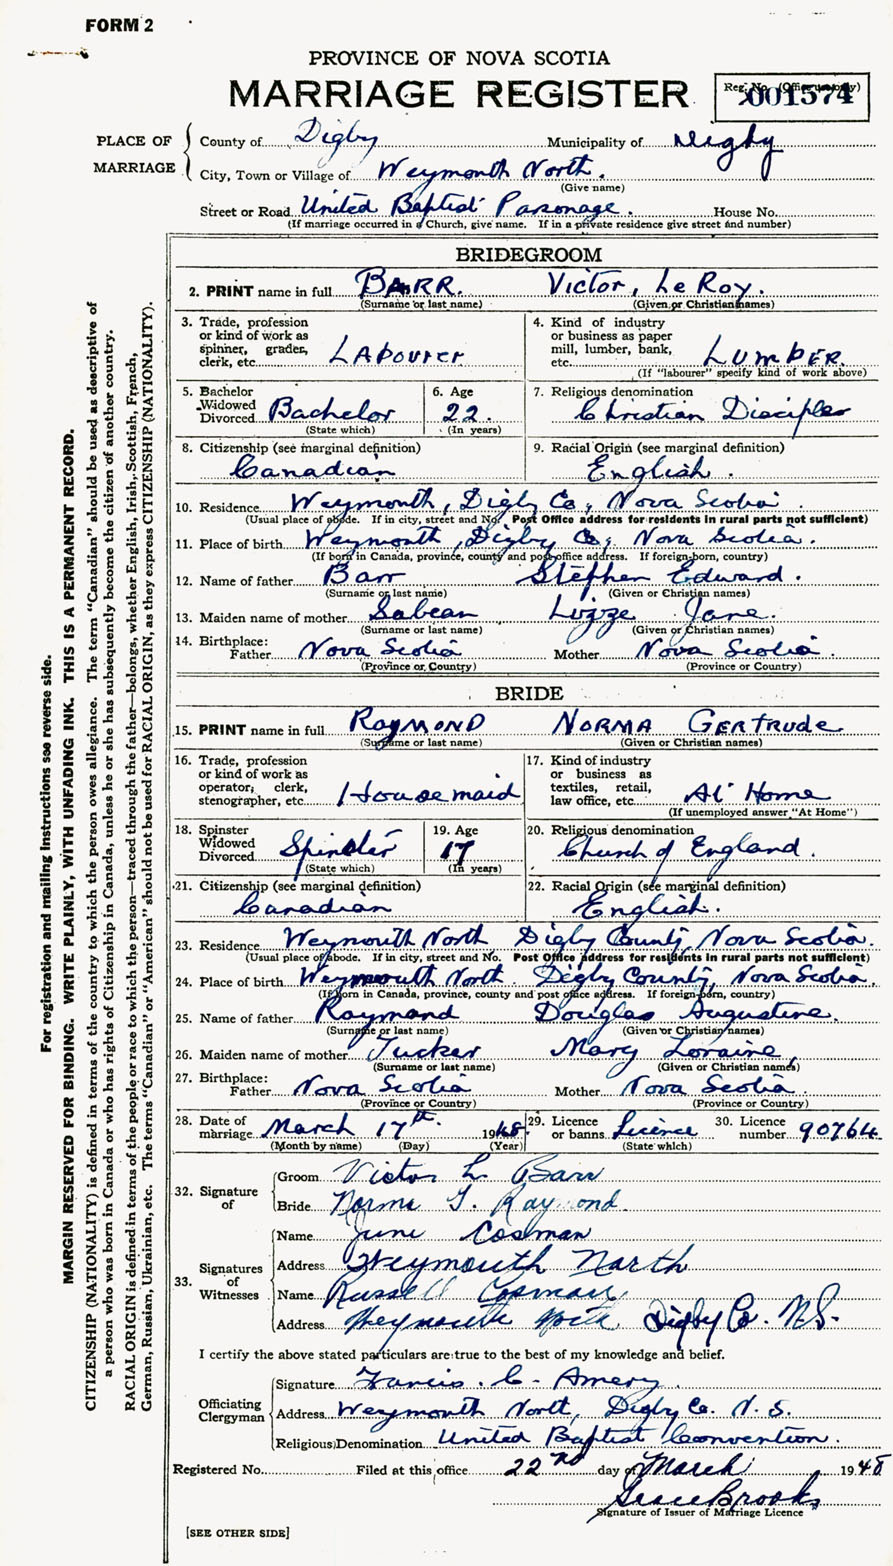 FORM 2
PROVINCE OF NOVA SCOTIA
MARRIAGE REGISTER
Reg. No. (Office use only)
001574
PLACE OF MARRIAGE
County of Digby Municipality of Digby
City, Town or Village of Weymouth North.
(Give name)
Street or Road United Baptist Parsonage. House No.
(If marriage occurred in a Church, give name. If in a private residence give street and number)
BRIDEGROOM
2. PRINT name in full BARR. Victor, LeRoy.
(Surname or last name) (Given or Christian names)
3. Trade, profession or kind of work as spinner, grader, clerk, etc. Labourer
4. Kind of industry or business as paper mill, lumber, bank, etc. LUMBER
(If "labourer" specify kind of work above)
5. Bachelor Widowed Divorced Bachelor
(State which)
6. Age 22.
(In years)
7. Religious denomination
Christian Disciples
8. Citizenship (see marginal definition)
Canadian
9. Racial Origin (see marginal definition)
English.
10. Residence Weymouth, Digby Co, Nova Scotia.
(Usual place of abode. If in city, street and No. Post Office address for residents in rural parts not sufficient)
11. Place of birth Weymouth, Digby Co, Nova Scotia.
(If born in Canada, province, county and post office address. If foreign-born, country)
12. Name of father Barr Stephen Edward.
(Surname or last name) (Given or Christian names)
13. Maiden name of mother Sabean Lizze Jane.
(Surname or last name) (Given or Christian names)
14. Birthplace:
Father Nova Scotia Mother Nova Scotia.
(Province or Country) (Province or Country)
BRIDE
15. PRINT name in full Raymond Norma Gertrude
(Surname or last name) (Given or Christian names)
16. Trade, profession or kind of work as operator, clerk, stenographer, etc. Housemaid
17. Kind of industry or business as textiles, retail, law office, etc. At Home
(If unemployed answer "At Home")
18. Spinster Widowed Divorced Spinster
(State which)
19. Age 17
(In years)
20. Religious denomination
Church of England.
21. Citizenship (see marginal definition)
Canadian
22. Racial Origin (see marginal definition)
English.
23. Residence Weymouth North Digby County, Nova Scotia.
(Usual place of abode. If in city, street and No. Post Office address for residents in rural parts not sufficient)
24. Place of birth Weymouth North. Digby County, Nova Scotia.
(If born in Canada, province, county and post office address. If foreign-born, country)
25. Name of father Raymond Douglas Augustine.
(Surname or last name) (Given or Christian names)
26. Maiden name of mother Tucker Mary Loraine,
(Surname or last name) (Given or Christian names)
27. Birthplace:
Father Nova Scotia Mother Nova Scotia.
(Province or Country) (Province or Country)
28. Date of marriage March 17th. 1948.
(Month by name) (Day) (Year)
29. Licence or banns Licence
(State which)
30. Licence number 90764
32. Signature of
Groom Victor L. Barr
Bride Norma G. Raymond
33. Signatures of Witnesses
Name June Cosman
Address Weymouth North
Name Russell Cosman
Address Weymouth North Digby Co. N.S.
I certify the above stated particulars are true to the best of my knowledge and belief.
Officiating Clergyman
Signature Francis. C. Amery.
Address Weymouth North, Digby Co. N. S.
Religious Denomination United Baptist Convention.
Registered No. Filed at this office 22nd day of March 1948
Grace Brooks
Signature of Issuer of Marriage Licence
[SEE OTHER SIDE]
For registration and mailing instructions see reverse side.
MARGIN RESERVED FOR BINDING. WRITE PLAINLY, WITH UNFADING INK. THIS IS A PERMANENT RECORD.
CITIZENSHIP (NATIONALITY) is defined in terms of the country to which the person owes allegiance. The term "Canadian" should be used as descriptive of
a person who was born in Canada or who has rights of Citizenship in Canada, unless he or she has subsequently become the citizen of another country.
RACIAL ORIGIN is defined in terms of the people or race to which the person—traced through the father—belongs, whether English, Irish, Scottish, French,
German, Russian, Ukrainian, etc. The terms "Canadian" or "American" should not be used for RACIAL ORIGIN, as they express CITIZENSHIP (NATIONALITY).